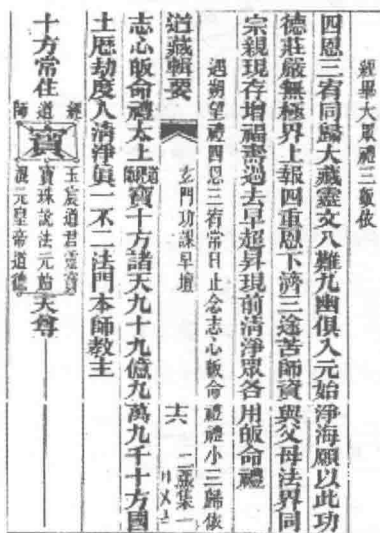 經畢大眾禮三皈依
四恩三宥同歸大藏靈文八難九幽俱入元始淨海願以此功
德莊嚴無極界上報四重恩下濟三途苦師資與父母法界同
宗親現存增福壽過去早超昇現前清淨眾各用皈命禮
遇朔望禮四恩三宥常日止念志心皈命禮禮小三歸依
道藏輯要
玄門功課早壇
十六
張集一
志心皈命禮太上道經師寶十方諸天九十九億九萬九千十方國
土歷劫度人清淨真一不二法門本師教主
十方常住
經道師
寶
玉宸道君靈寶
寶珠說法元始
混元皇帝道德
天尊